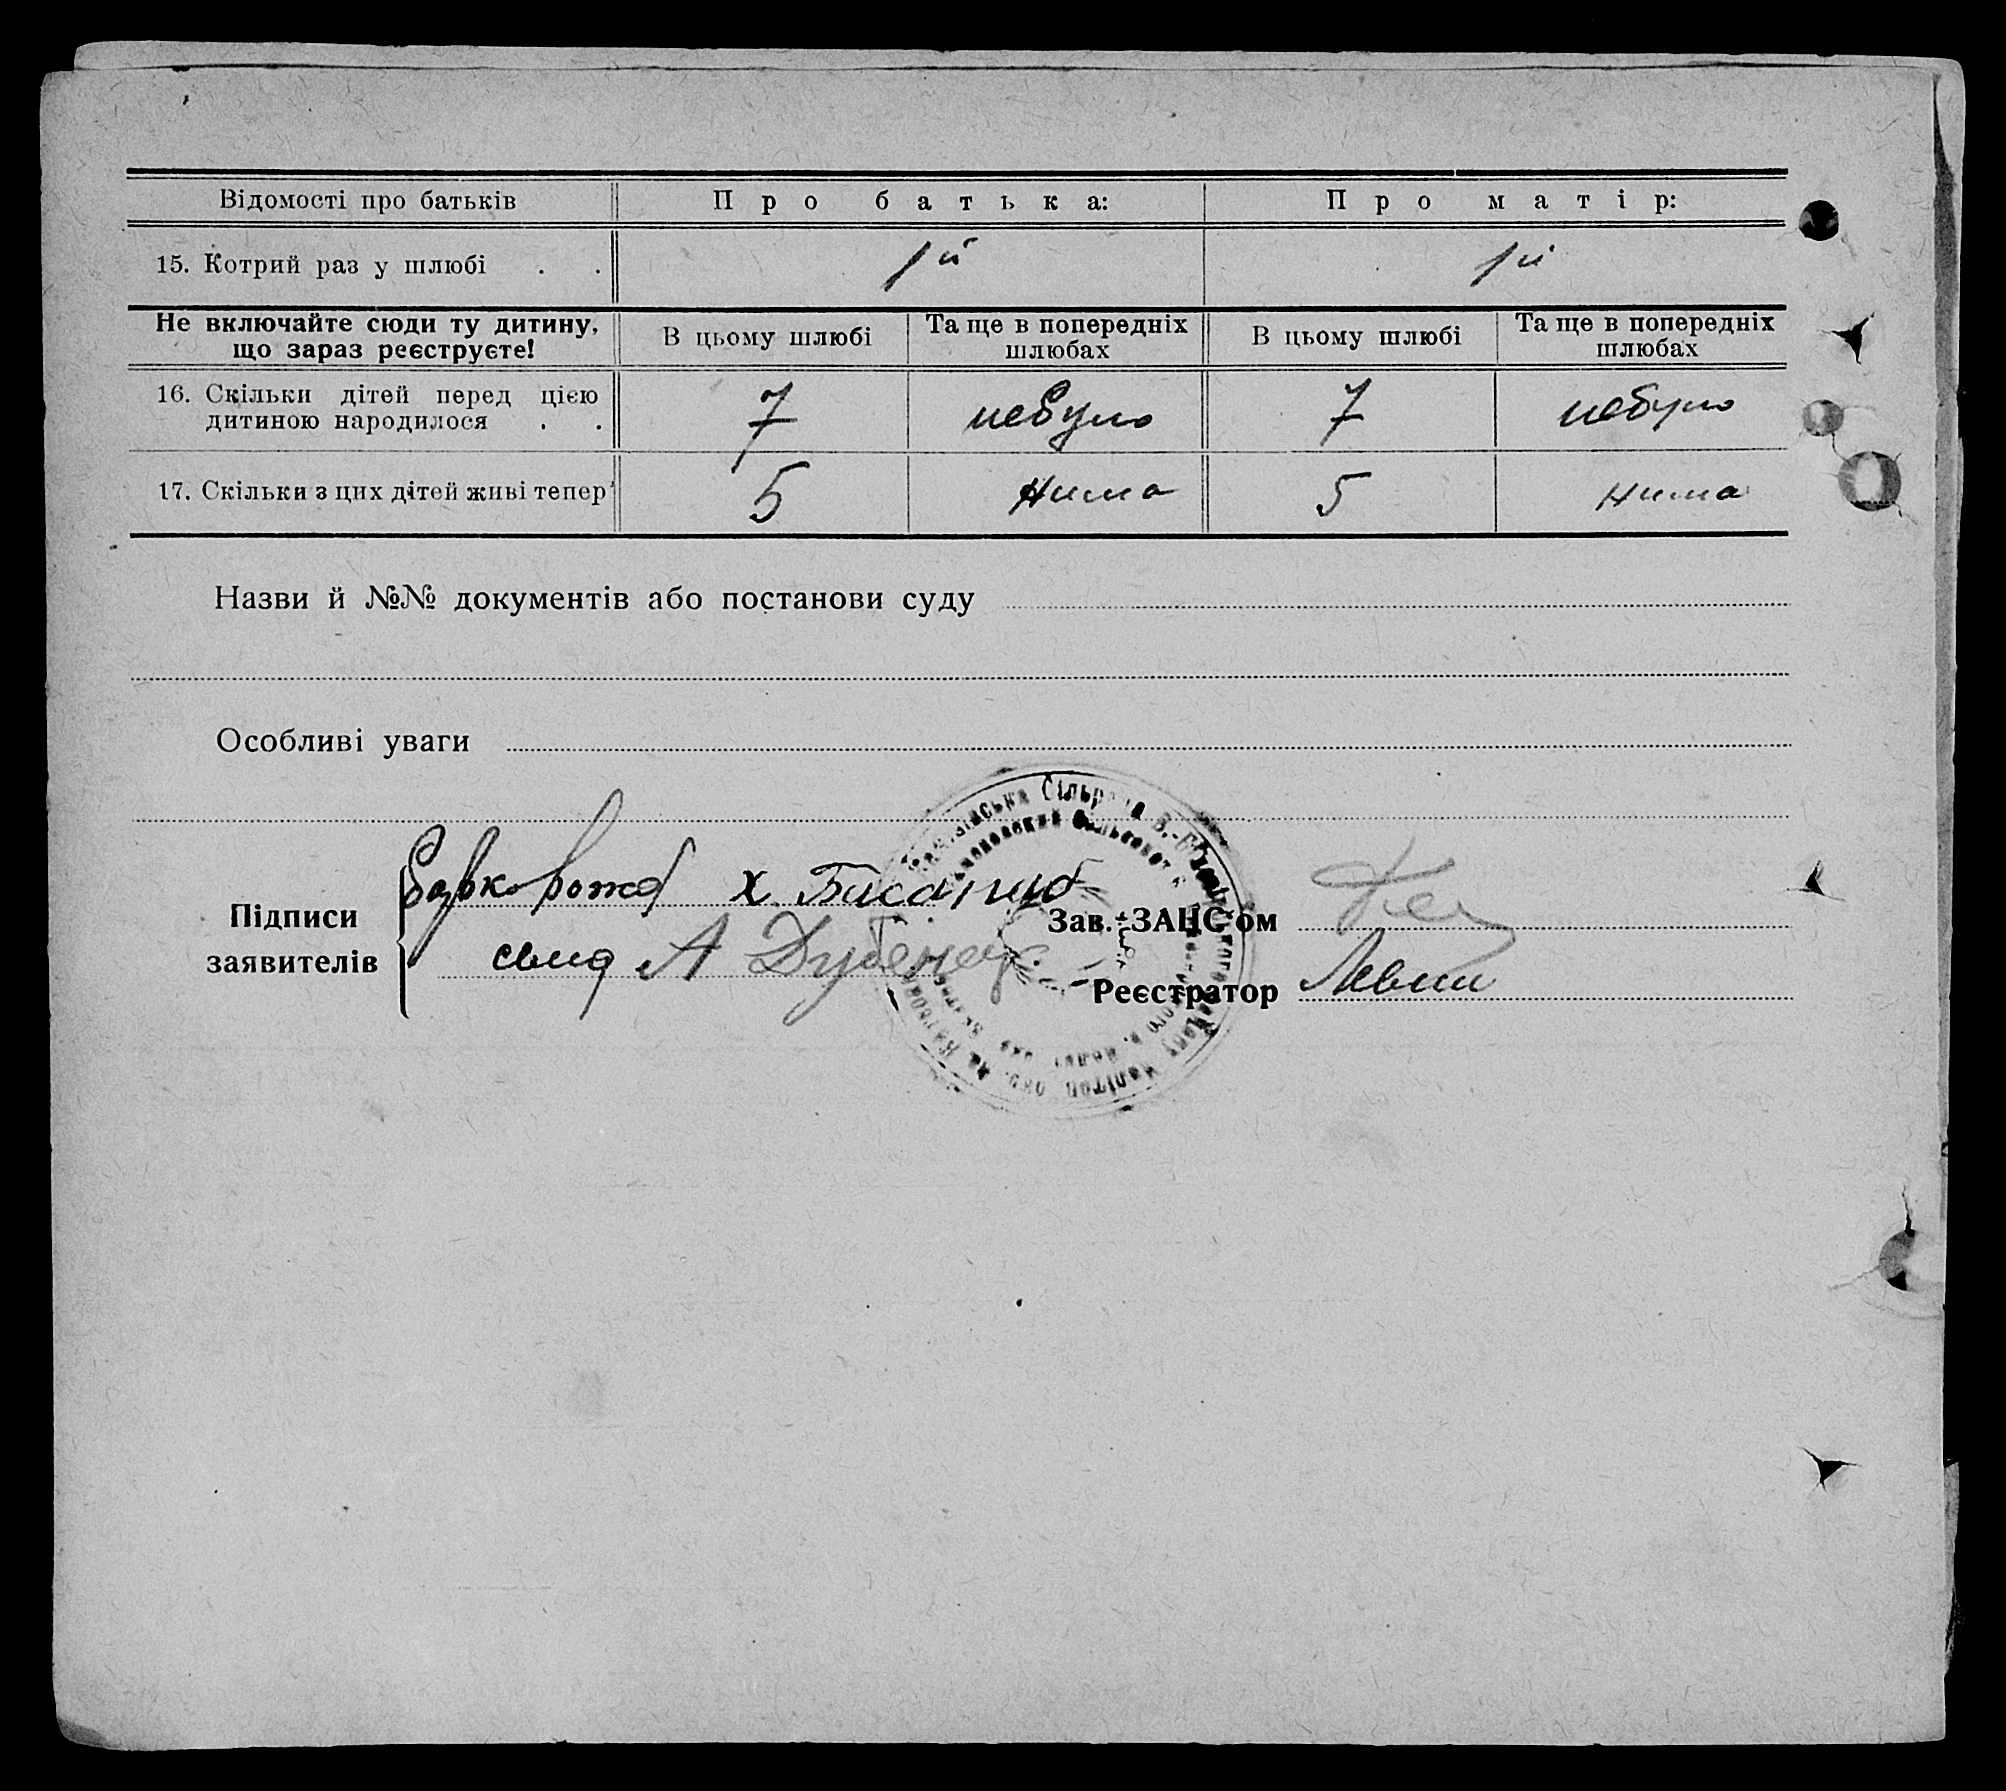 Відомості про батьків Про батька: Про матір:
15. Котрий раз у шлюбі . . 1й 1й
Не включайте сюди ту дитину, що зараз реєструєте! В цьому шлюбі Та ще в попередніх шлюбах В цьому шлюбі Та ще в попередніх шлюбах
16. Скільки дітей перед цією
дитиною народилося . . 7 небуло 7 небуло
17. Скільки з цих дітей живі тепер 5 Нима 5 Нима
Назви й №№ документів або постанови суду
Особливі уваги
Сільрада
Підписи
заявителів
х
А Дубенец
Зав. ЗАЦС'ом
Реєстратор